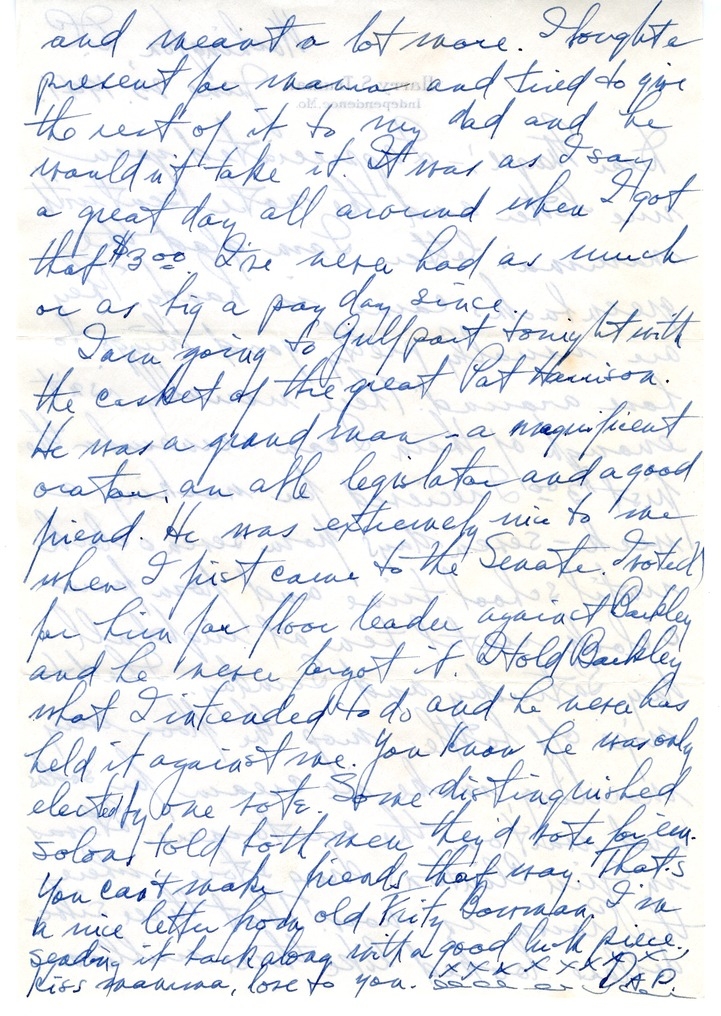 and meant a lot more. I bought a
present for mama and tried to give
the rest of it to my dad and he
wouldn't take it. It was as I say
a great day all around when I got
that $3.00. I've never had as much
or as big a pay day since.
I am going to Gulfport tonight with
the casket of the great Pat Harrison.
He was a grand man - a magnificent
orator, an able legislator and a good
friend. He was extremely nice to me
when I first came to the Senate. I voted
for him for floor leader against Barkley
and he never forgot it. I told Barkley
what I intended to do and he never has
held it against me. You know he was only
elected by one vote. Some distinguished
solons told both men they'd vote for 'em.
You can't make friends that way. That's
a nice letter from old Fritz Bowman. I'm
sending it back along with a good luck piece.
Kiss mamma, love to you. XXXXXXXX DAD.